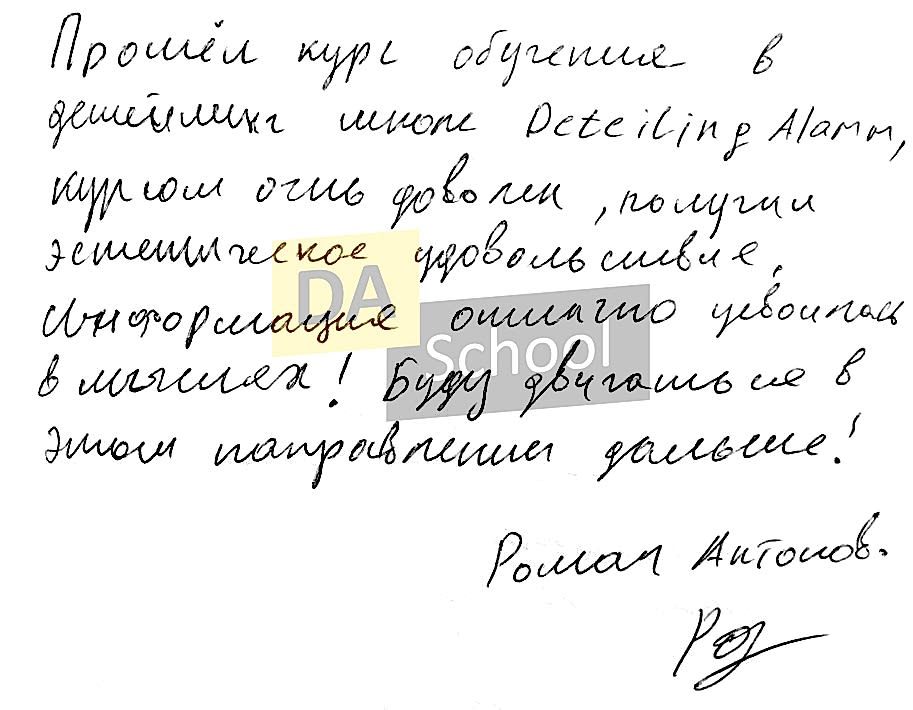 Прошёл курс обучения в
детейлинг школе Deteiling Alarm,
курсом очнь доволен, получил
эстетическое удовольствие,
DA
School
Информация отлично усвоилась
в мыслях! Буду двигаться в
этом направлении дальше!
Роман Антонов.